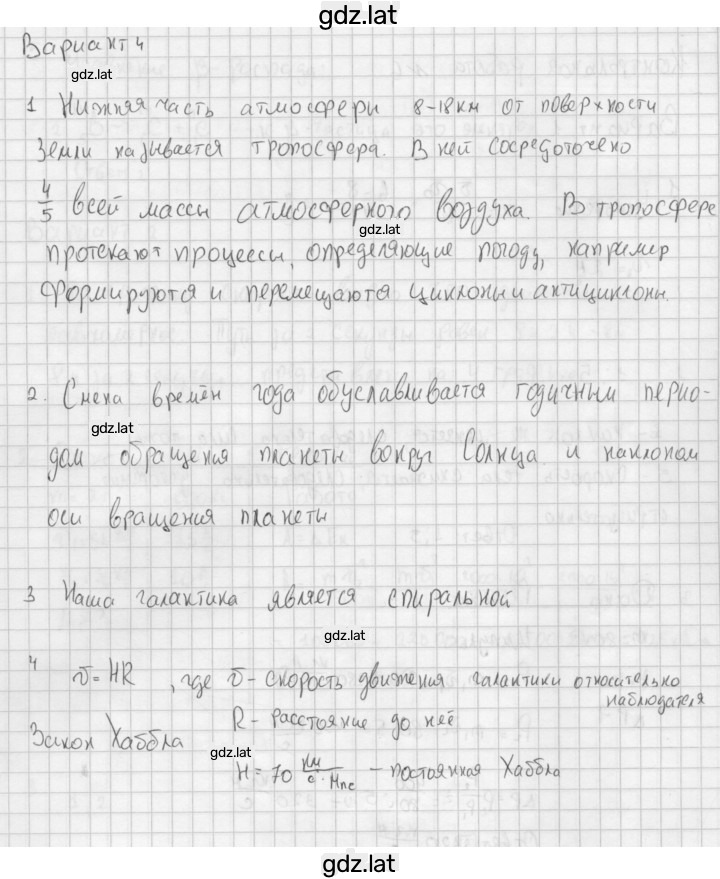 gdz.lat
Вариант 4
gdz.lat
1 Нижняя часть атмосфери 8-18км от поверхности
Земли называется тропосфера. В ней сосредоточено
4/5 всей массы атмосферного воздуха. В тропосфере
gdz.lat
протекают процессы, определяющие погоду, например
формируются и перемещаются циклоны и антициклоны.
2. Смена времён года обуславливается годичным перио-
gdz.lat
дом обращения планеты вокруг Солнца и наклоном
оси вращения планеты
3 Наша галактика является спиральной
gdz.lat
4 v = HR, где v - скорость движения галактики относительно
наблюдателя
R - расстояние до неё
Закон Хаббла
gdz.lat
H = 70 км/с·Мпс - постоянная Хаббла
gdz.lat